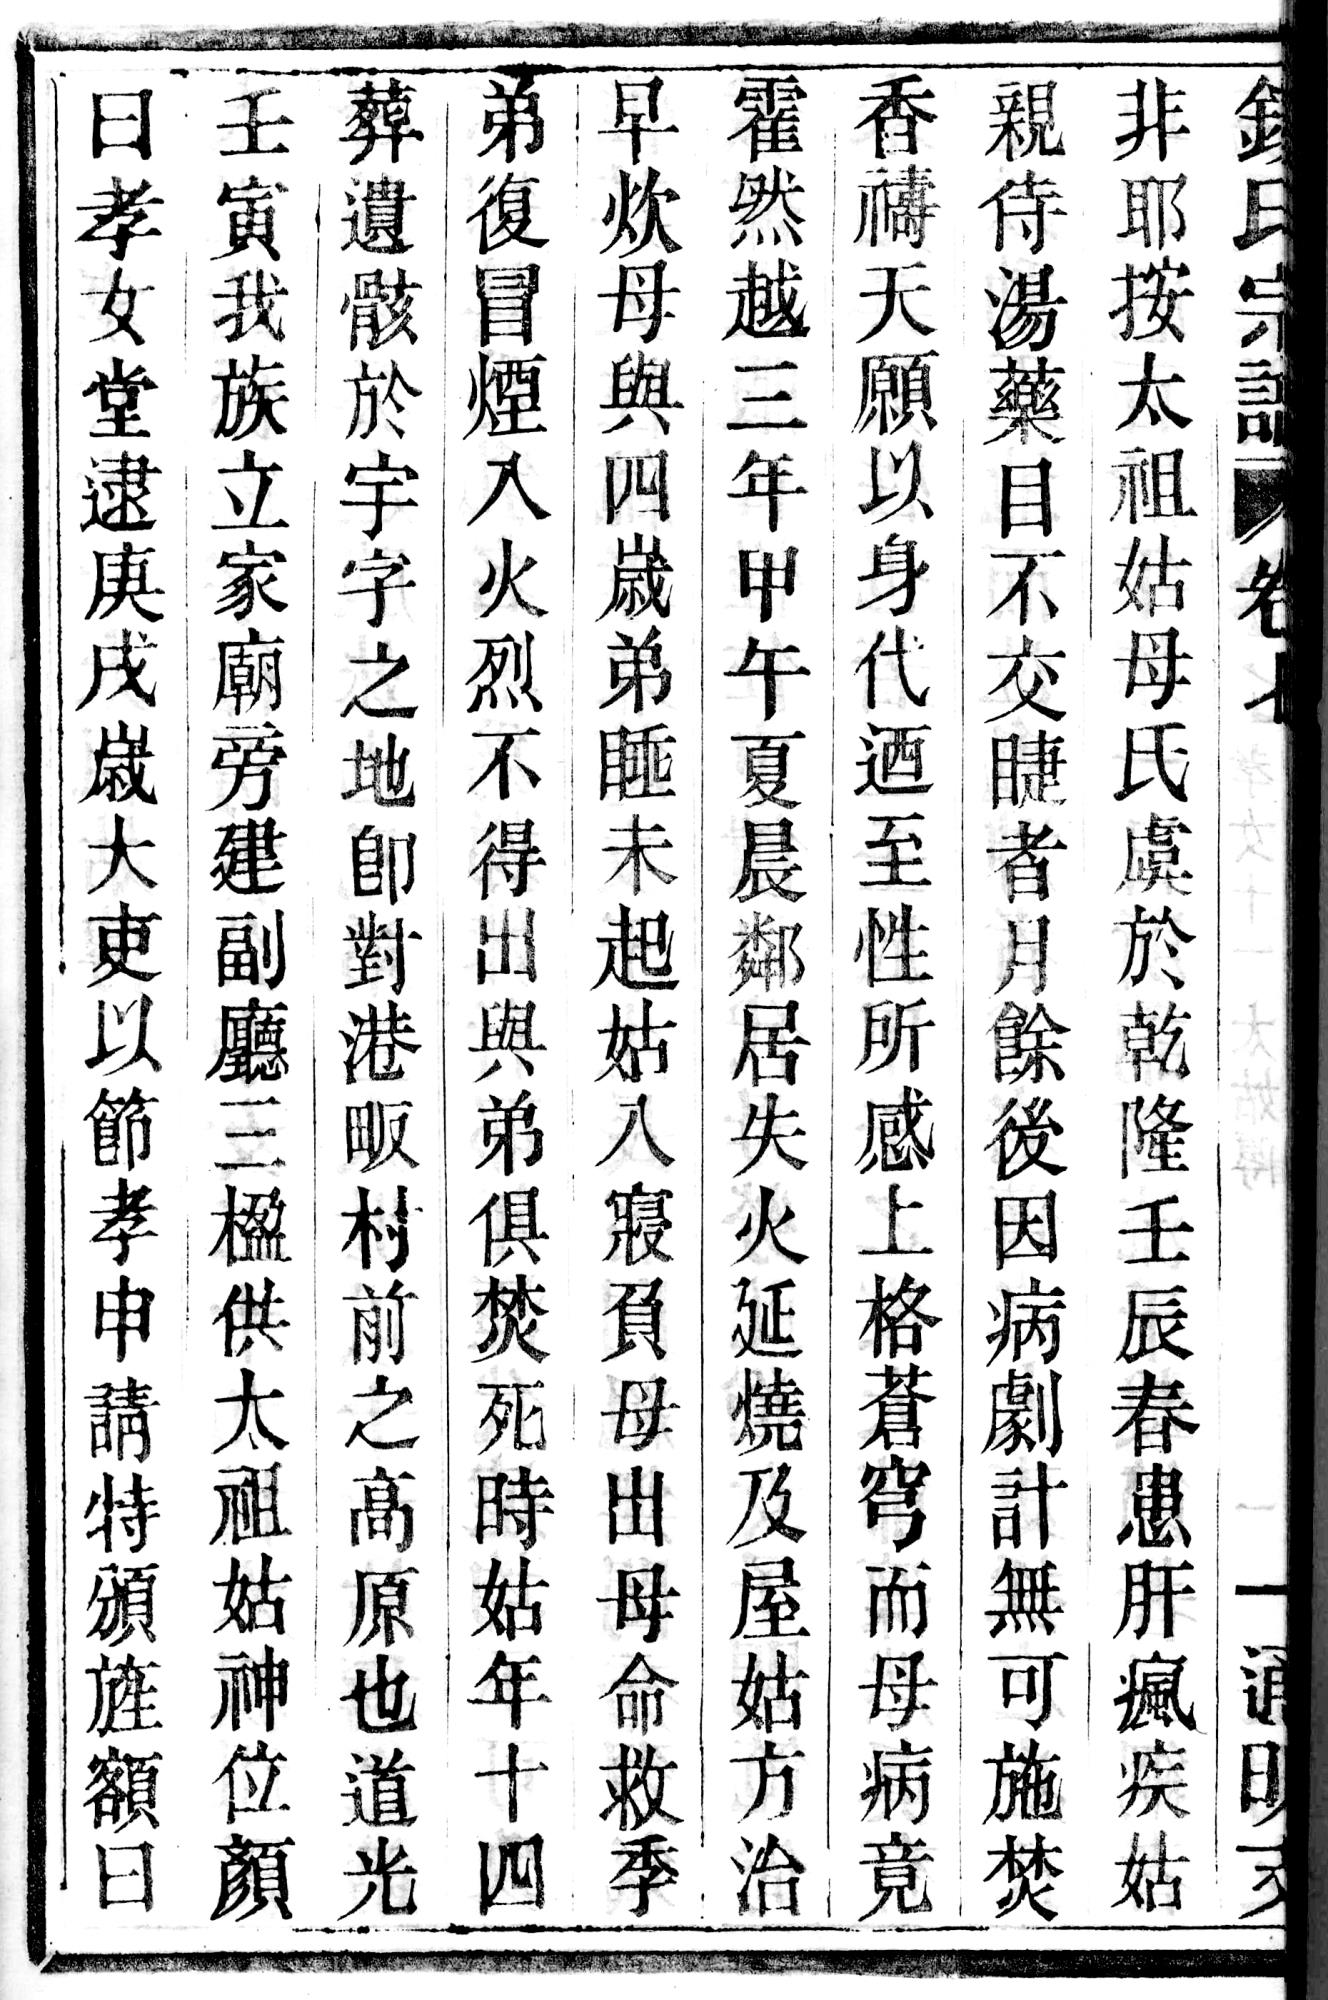 氏宗譜 卷七 一 通明
非耶按太祖姑母氏虞於乾隆壬辰春患肝瘋疾姑
親侍湯藥目不交睫者月餘後因病劇計無可施焚
香禱天願以身代迺至性所感上格蒼穹而母病竟
霍然越三年甲午夏晨鄰居失火延燒及屋姑方治
早炊母與四歲弟睡未起姑入寢負母出母命救季
弟復冒煙入火烈不得出與弟俱焚死時姑年十四
葬遺骸於宇字之地卽對港畈村前之高原也道光
壬寅我族立家廟旁建副廳三楹供太祖姑神位顏
曰孝女堂逮庚戌歲大吏以節孝申請特頒旌額曰